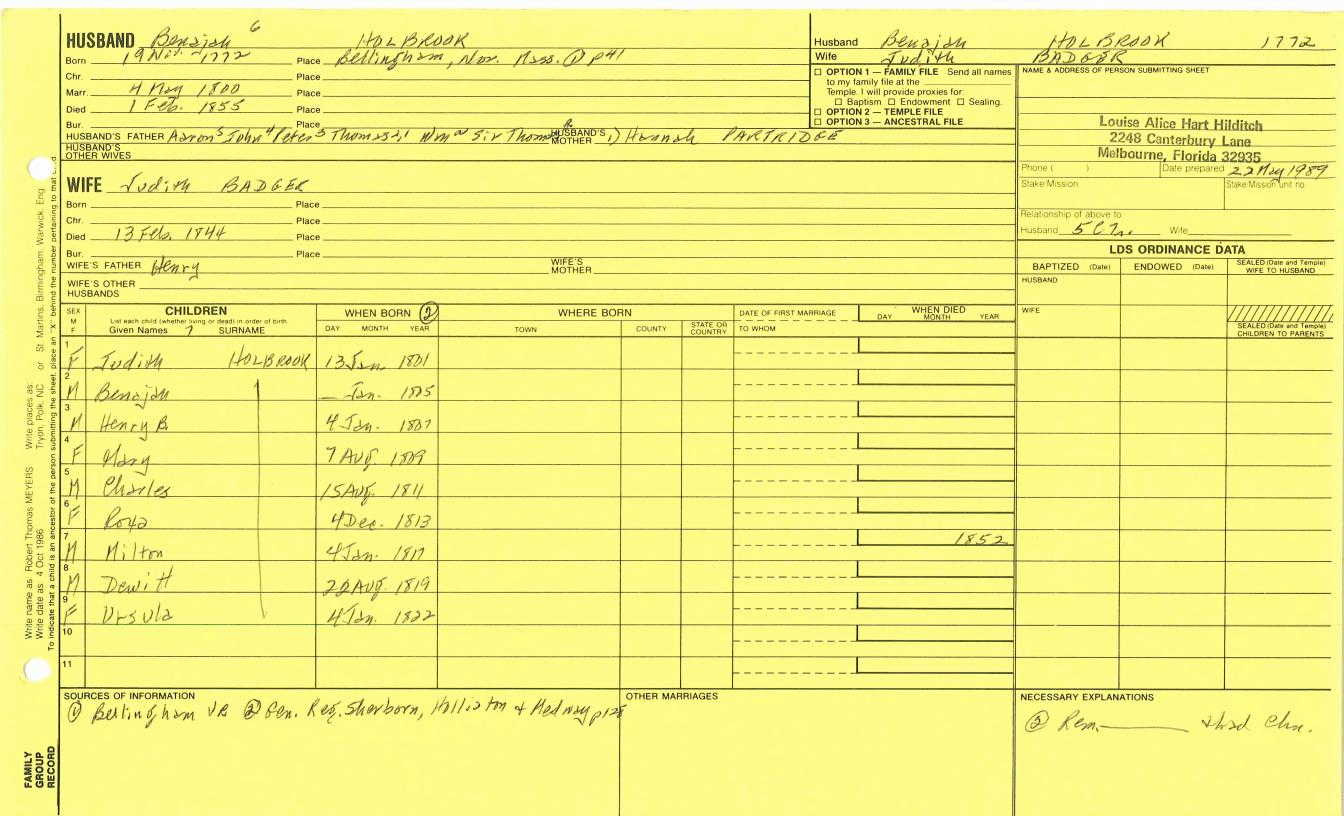 HUSBAND Benajah 6 HOLBROOK
Born 19 Nov. 1772 Place Bellingham, Nor. Mass. ① p41
Chr. Place
Marr. 4 May 1800 Place
Died 1 Feb. 1855 Place
Bur. Place
HUSBAND'S FATHER Aaron5 John4 Peter3 Thomas2,1 Wm a Sir Thomas HUSBAND'S MOTHER 1) Hannah PARTRIDGE
HUSBAND'S OTHER WIVES
Husband Benajah HOLBROOK 1772
Wife Judith BADGER
☐ OPTION 1 — FAMILY FILE Send all names
to my family file at the
Temple. I will provide proxies for:
☐ Baptism ☐ Endowment ☐ Sealing.
☐ OPTION 2 — TEMPLE FILE
☐ OPTION 3 — ANCESTRAL FILE
NAME & ADDRESS OF PERSON SUBMITTING SHEET
Louise Alice Hart Hilditch
2248 Canterbury Lane
Melbourne, Florida 32935
Phone ( ) Date prepared 22 May 1989
Stake/Mission Stake/Mission unit no.
Relationship of above to
Husband 5C7r. Wife
WIFE Judith BADGER
Born Place
Chr. Place
Died 13 Feb. 1844 Place
Bur. Place
WIFE'S FATHER Henry WIFE'S MOTHER
WIFE'S OTHER HUSBANDS
LDS ORDINANCE DATA
BAPTIZED (Date) ENDOWED (Date) SEALED (Date and Temple) WIFE TO HUSBAND
HUSBAND
WIFE
SEALED (Date and Temple) CHILDREN TO PARENTS
SEX M F
CHILDREN
List each child (whether living or dead) in order of birth.
Given Names 7 SURNAME
WHEN BORN ②
DAY MONTH YEAR
WHERE BORN
TOWN COUNTY STATE OR COUNTRY
DATE OF FIRST MARRIAGE
TO WHOM
WHEN DIED
DAY MONTH YEAR
1 F Judith HOLBROOK 13 Jan 1801
2 M Benajah Jan. 1805
3 M Henry B. 4 Jan. 1807
4 F Mary 7 Aug. 1809
5 M Charles 15 Aug. 1811
6 F Roxa 4 Dec. 1813
7 M Milton 4 Jan. 1817 1852
8 M Dewitt 20 Aug. 1819
9 F Ursula 4 Jan. 1822
10
11
SOURCES OF INFORMATION
① Bellingham VR ② Gen. Reg. Sherborn, Holliston & Medway p128
OTHER MARRIAGES
NECESSARY EXPLANATIONS
② Rem. &had Chn.
Write name as: Robert Thomas MEYERS Write places as: St. Martins, Birmingham, Warwick, Eng.
Write date as: 4 Oct 1986 Tryon, Polk, NC or
To indicate that a child is an ancestor of the person submitting the sheet, place an "X" behind the number pertaining to that
FAMILY
GROUP
RECORD